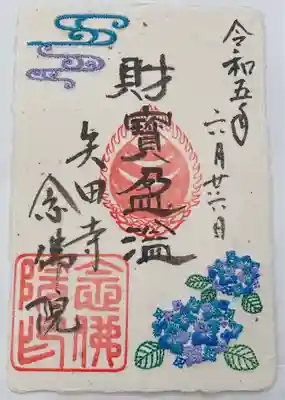 令和五年
六月廿六日
財寶盈溢
矢田寺
念佛院
念佛
院印